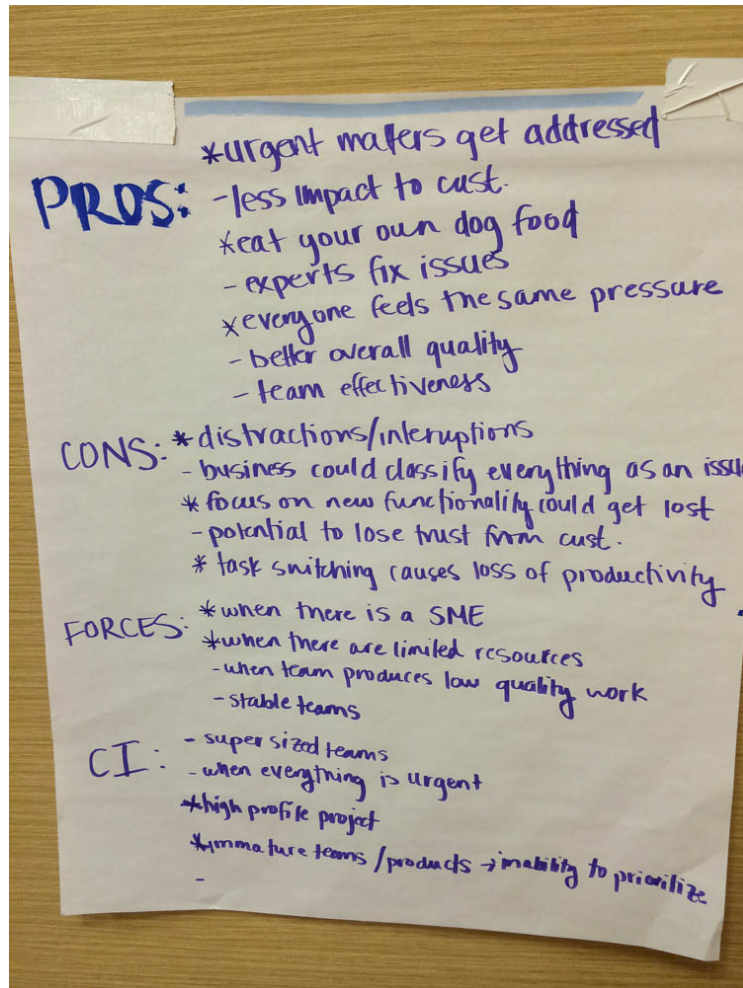 *urgent maters get addressed
PROS: -less impact to cust.
*eat your own dog food
- experts fix issues
*everyone feels the same pressure
- better overall quality
- team effectiveness
CONS: *distractions/interuptions
- business could classify everything as an issue
* focus on new functionality could get lost
- potential to lose trust from cust.
* task switching causes loss of productivity
FORCES: *when there is a SME
*when there are limited resources
-when team produces low quality work
-stable teams
CI: - super sized teams
- when everything is urgent
*high profile project
*immature teams/products → inability to prioritize
-